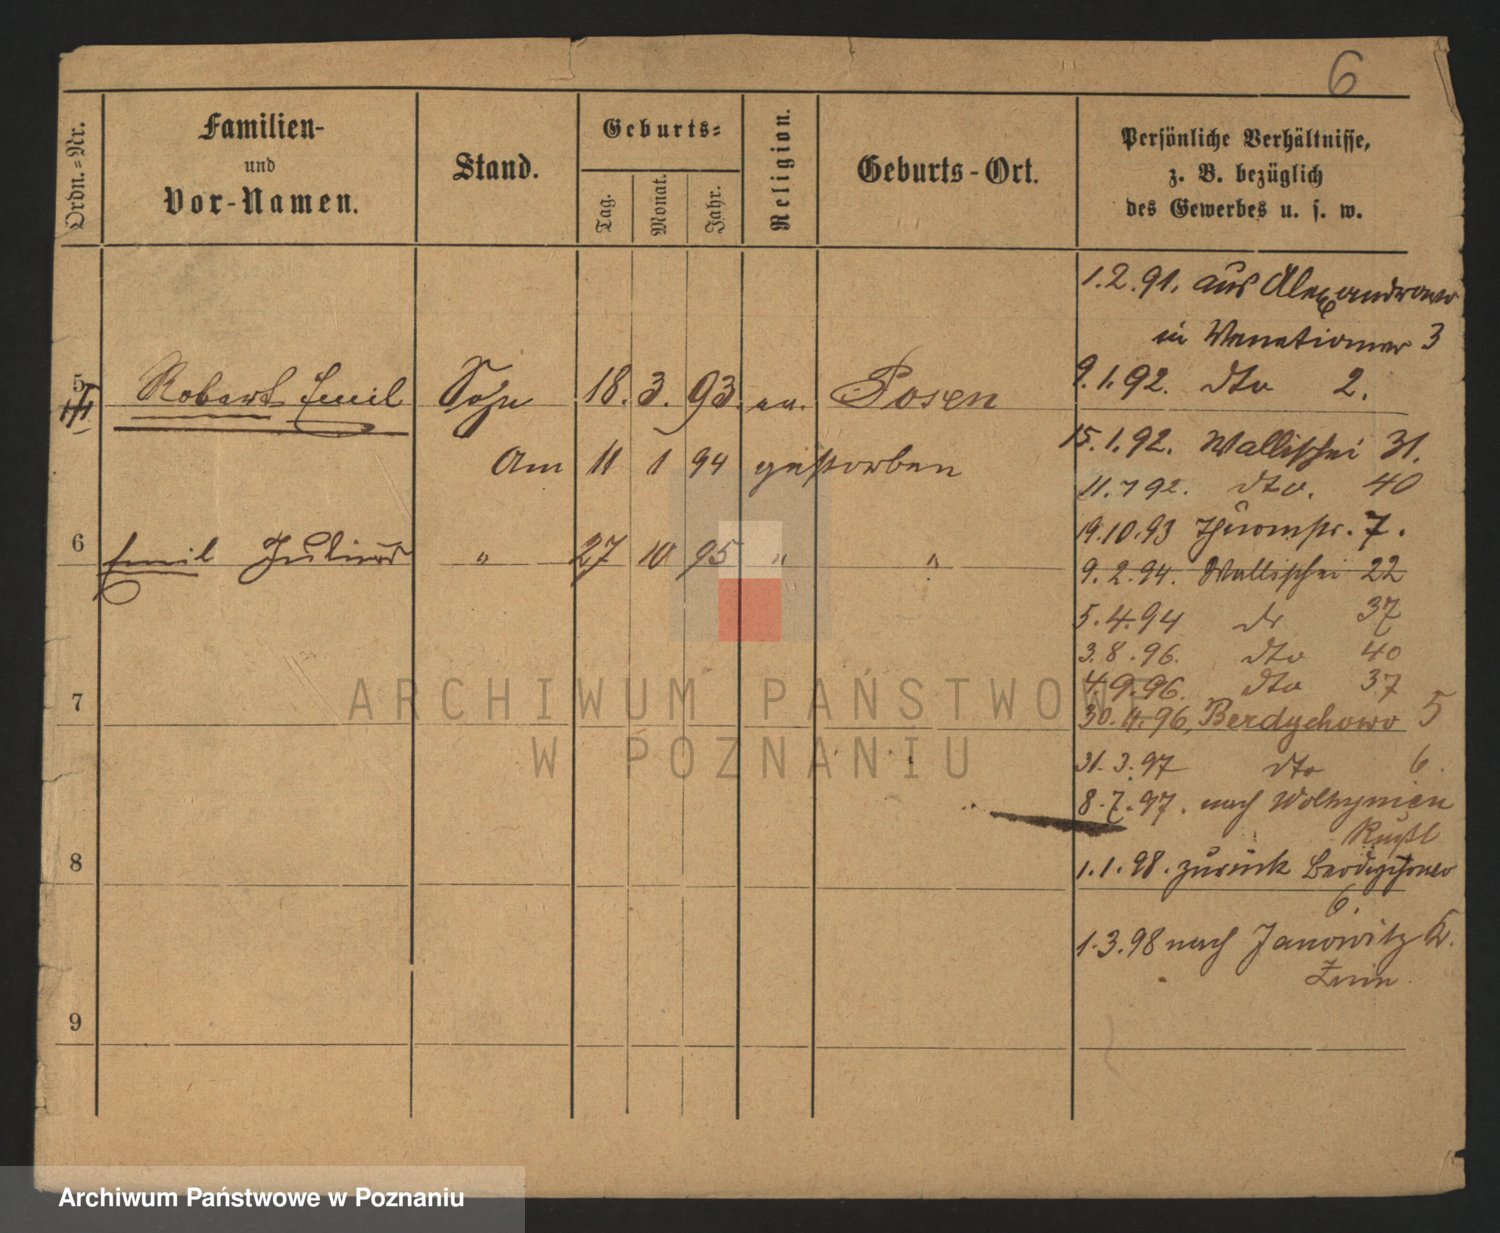 6
Ordn.-Nr.
Familien-
und
Vor-Namen.
Stand.
Geburts-
Tag.
Monat.
Jahr.
Religion.
Geburts-Ort.
Persönliche Verhältnisse,
z. B. bezüglich
des Gewerbes u. s. w.
1.2.91. aus
in 3
5 Robert Emil Sohn 18. 3. 93. ev. Posen
9.1.92. dto 2.
15.1.92. Wallischei 31.
Am 11 1 94 gestorben
11.7 92. dto. 40
19.10.93 Thurmstr. 7.
6 Emil Julius " 27 10 95 " "
9.2.94. Wallischei 22
5.4.94 do 37
3.8.96. dto 40
4.9.96. dto 37
7
30.11.96, Berdychowo 5
31.3.97 dto 6.
8.7.97. nach Wolhynien
Rußl
8
1.1.98. zurück
6.
1.3.98 nach Janowitz K.
Znin
9
ARCHIWUM PAŃSTWOWE
W POZNANIU
Archiwum Państwowe w Poznaniu